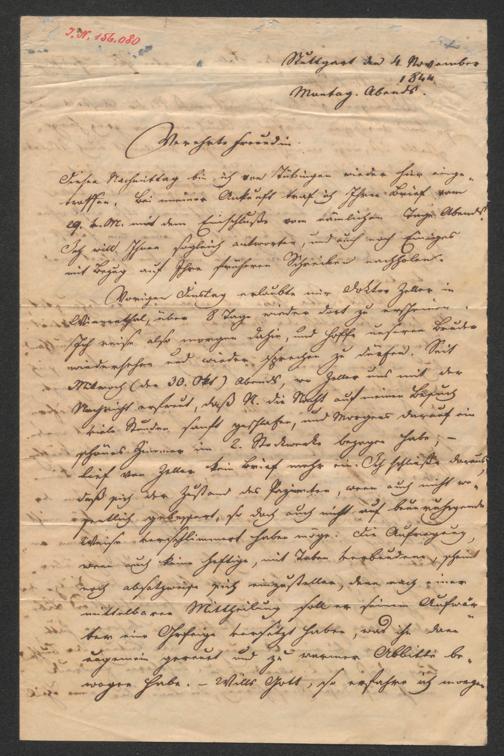 I.N. 156.080
Stuttgart den 4. November
1844
Montag. Abends.
Verehrte Freundin.
Diesen Nachmittag bin ich von Tübingen wieder hier einge-
troffen. Bei meiner Ankunft traf ich Ihren Brief vom
29. v. M. mit dem Einschlusse vom nämlichen Tage Abends.
Ich will Ihnen sogleich antworten, und auch noch Einiges
mit Bezug auf Ihre früheren Schreiben nachholen.
Vorigen Dinstag erlaubte mir Doktor Zeller in
Winnenthal, über 8 Tage wieder dort zu erscheinen.
Ich reise also morgen dahin, und hoffe unseren Bruder
wiedersehen und wieder sprechen zu dürfen. Seit
Mittwoch (den 30. Okt.) Abends, wo Zeller uns mit der
Nachricht erfreut, daß N. die Nacht auf meinen Besuch
viele Stunden sanft geschlafen, und Morgens darauf ein
schönes Zimmer im 2. Stockwerke bezogen habe; –
lief von Zeller kein Brief mehr ein. Ich schließe daraus,
daß sich der Zustand des Patienten, wenn auch nicht we-
sentlich gebessert, so doch auch nicht auf beunruhigende
Weise verschlimmert haben möge. Die Aufregung,
wenn auch keine heftige, mit Toben verbundene, scheint
noch absatzweise sich einzustellen, denn nach einer
mittelbaren Mittheilung soll er seinem Aufwär-
ter eine Ohrfeige versetzt haben, was ihn dann
ungemein gereut und zu warmer Abbitte be-
wogen habe. – Wills Gott, so erfahre ich morgen